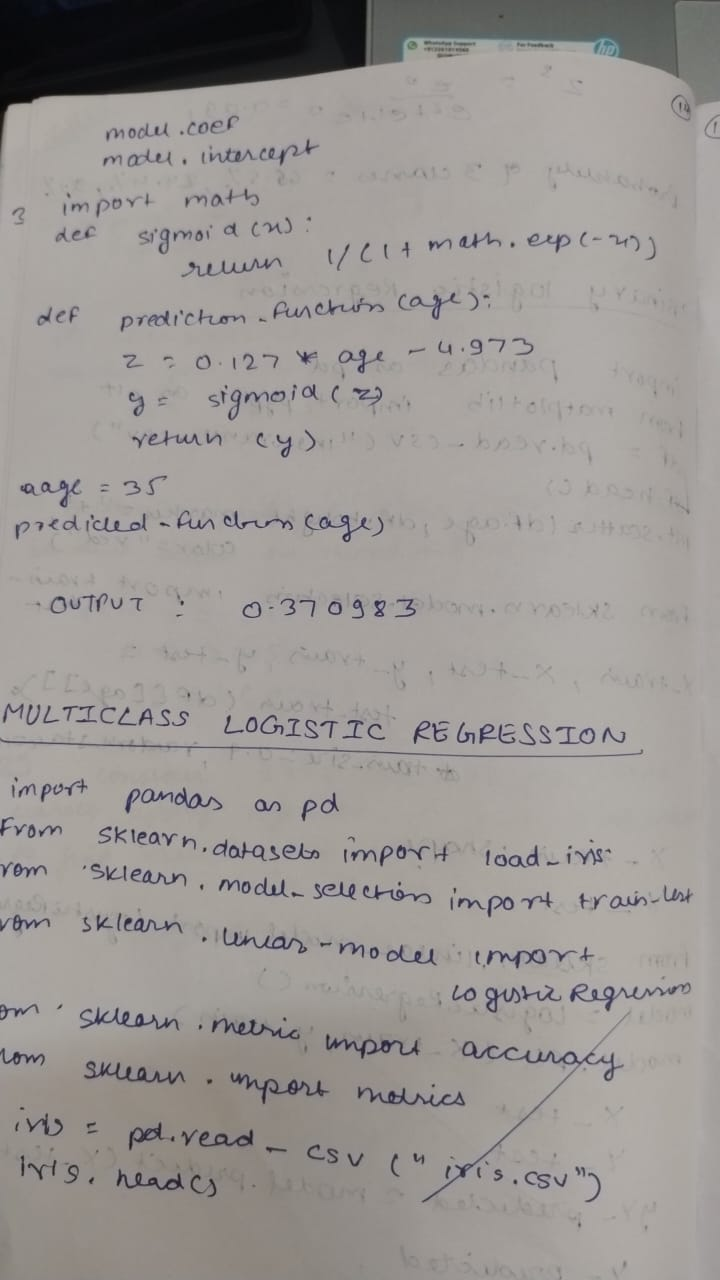 WhatsApp Support
For Feedback
hp
14
model.coef
model. intercept
3 import math
def sigmoid (x):
return 1/(1+ math. exp(-x))
def prediction-function (age):
z = 0.127 * age - 4.973
y = sigmoid (z)
return (y)
aage = 35
predicted-function (age)
OUTPUT : 0.370983
MULTICLASS LOGISTIC REGRESSION
import pandas as pd
From sklearn.datasets import load-iris
rom sklearn. model-selection import train-test
rom sklearn. linear-model import
Logistic Regression
om sklearn.metric import accuracy
rom sklearn. import metrics
iris = pd.read - csv ("iris.csv")
iris. head()